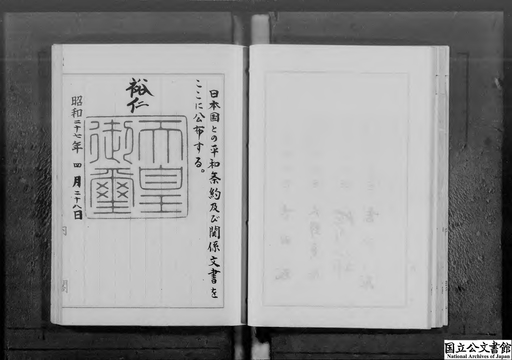 日本国との平和条約及び関係文書を
ここに公布する。
裕仁
天皇
御璽
昭和二十七年 四月二十八日
国立公文書館
National Archives of Japan